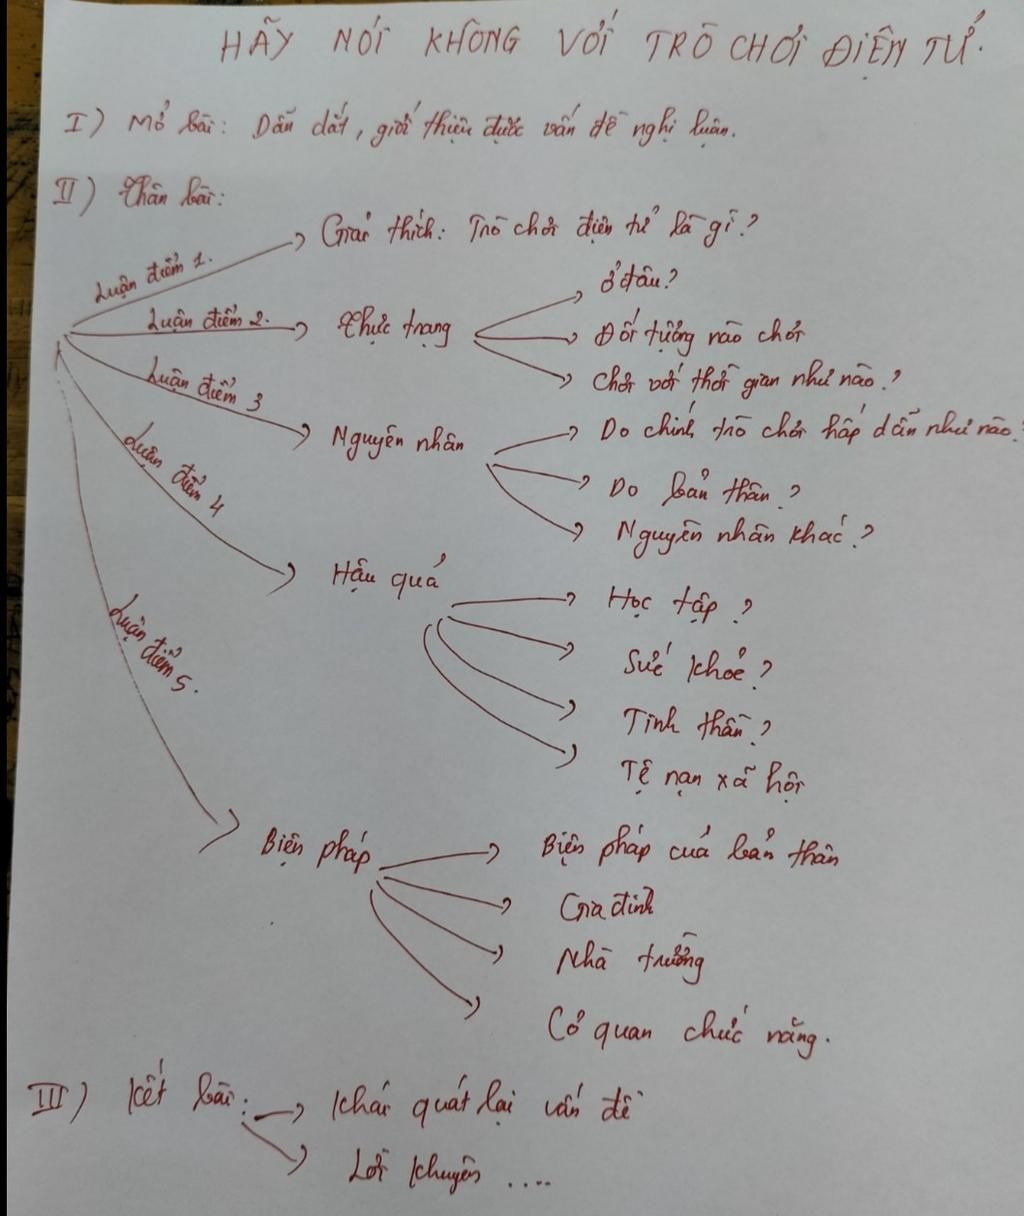 HÃY NÓI KHÔNG VỚI TRÒ CHƠI ĐIỆN TỬ.
I) Mở bài: Dẫn dắt, giới thiệu được vấn đề nghị luận.
II) Thân bài:
Luận điểm 1.
Giải thích: Trò chơi điện tử là gì?
Luận điểm 2.
Thực trạng
Ở đâu?
Đối tượng nào chơi
Chơi với thời gian như nào?
Luận điểm 3
Nguyên nhân
Do chính trò chơi hấp dẫn như nào?
Do bản thân?
Nguyên nhân khác?
Luận điểm 4
Hậu quả
Học tập?
Sức khoẻ?
Tinh thần?
Tệ nạn xã hội
Luận điểm 5.
Biện pháp
Biện pháp của bản thân
Gia đình
Nhà trường
Cơ quan chức năng.
III) Kết bài:
Khái quát lại vấn đề
Lời khuyên ....